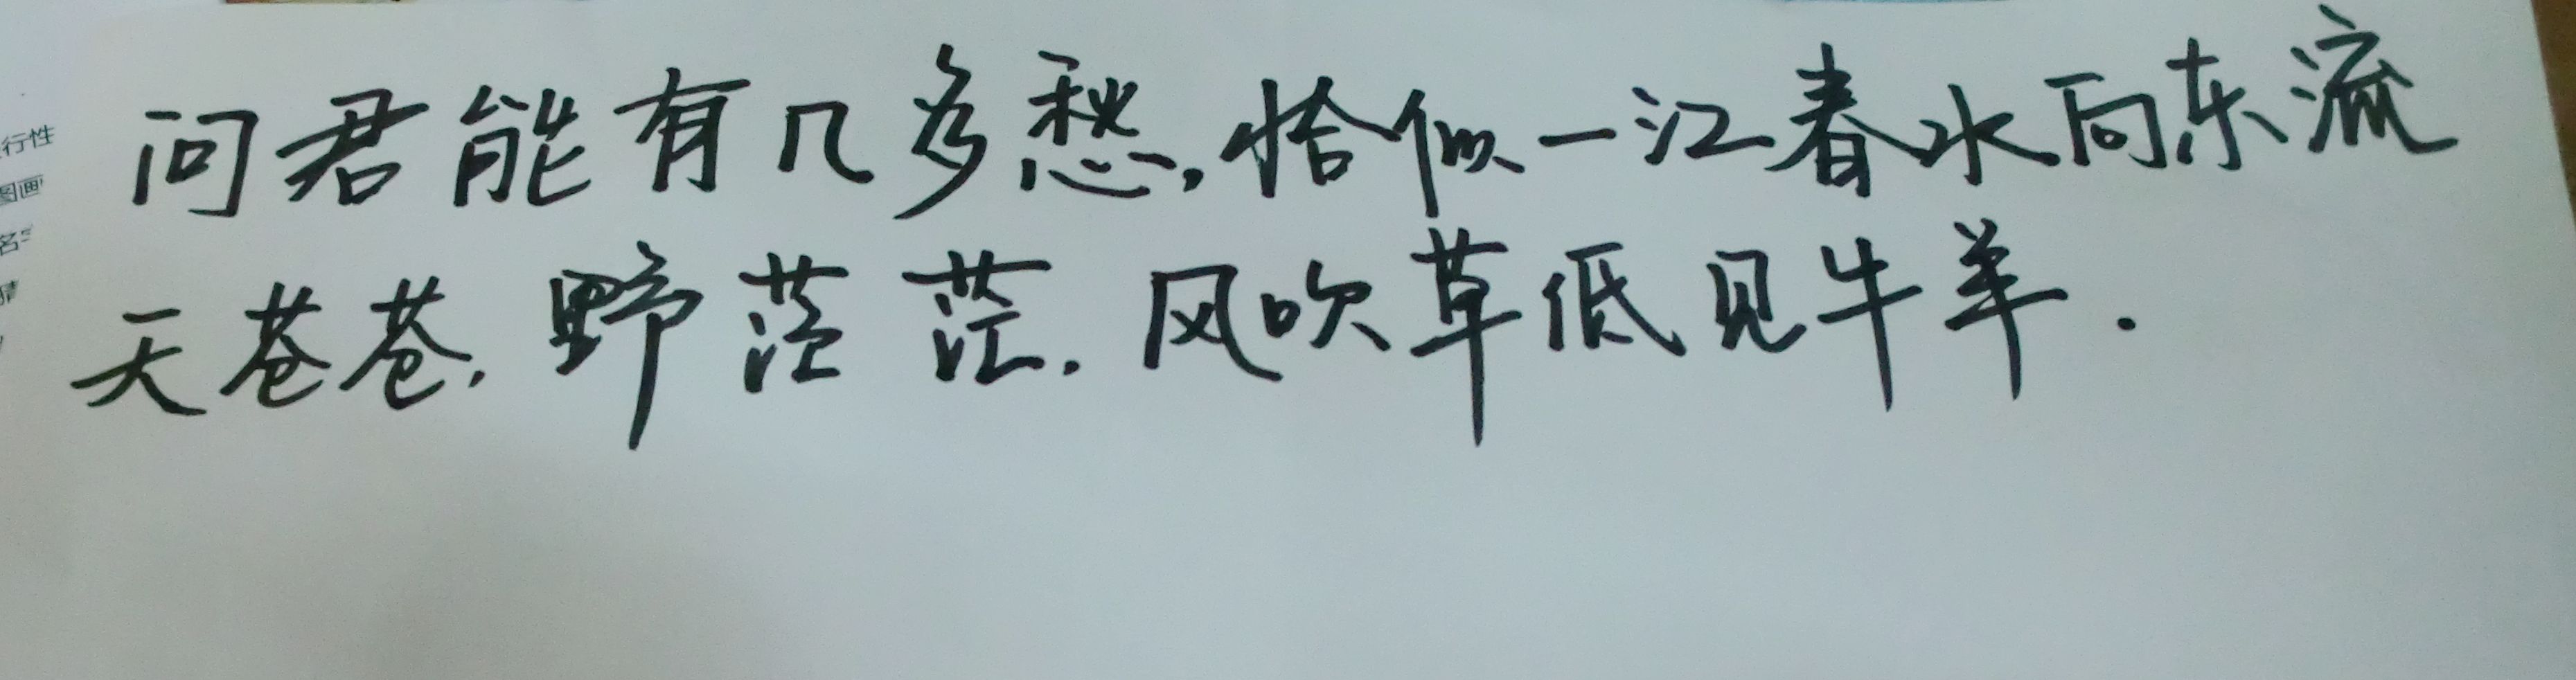 问君能有几多愁,恰似一江春水向东流
天苍苍,野茫茫.风吹草低见牛羊.
行性
图画
名字
猜